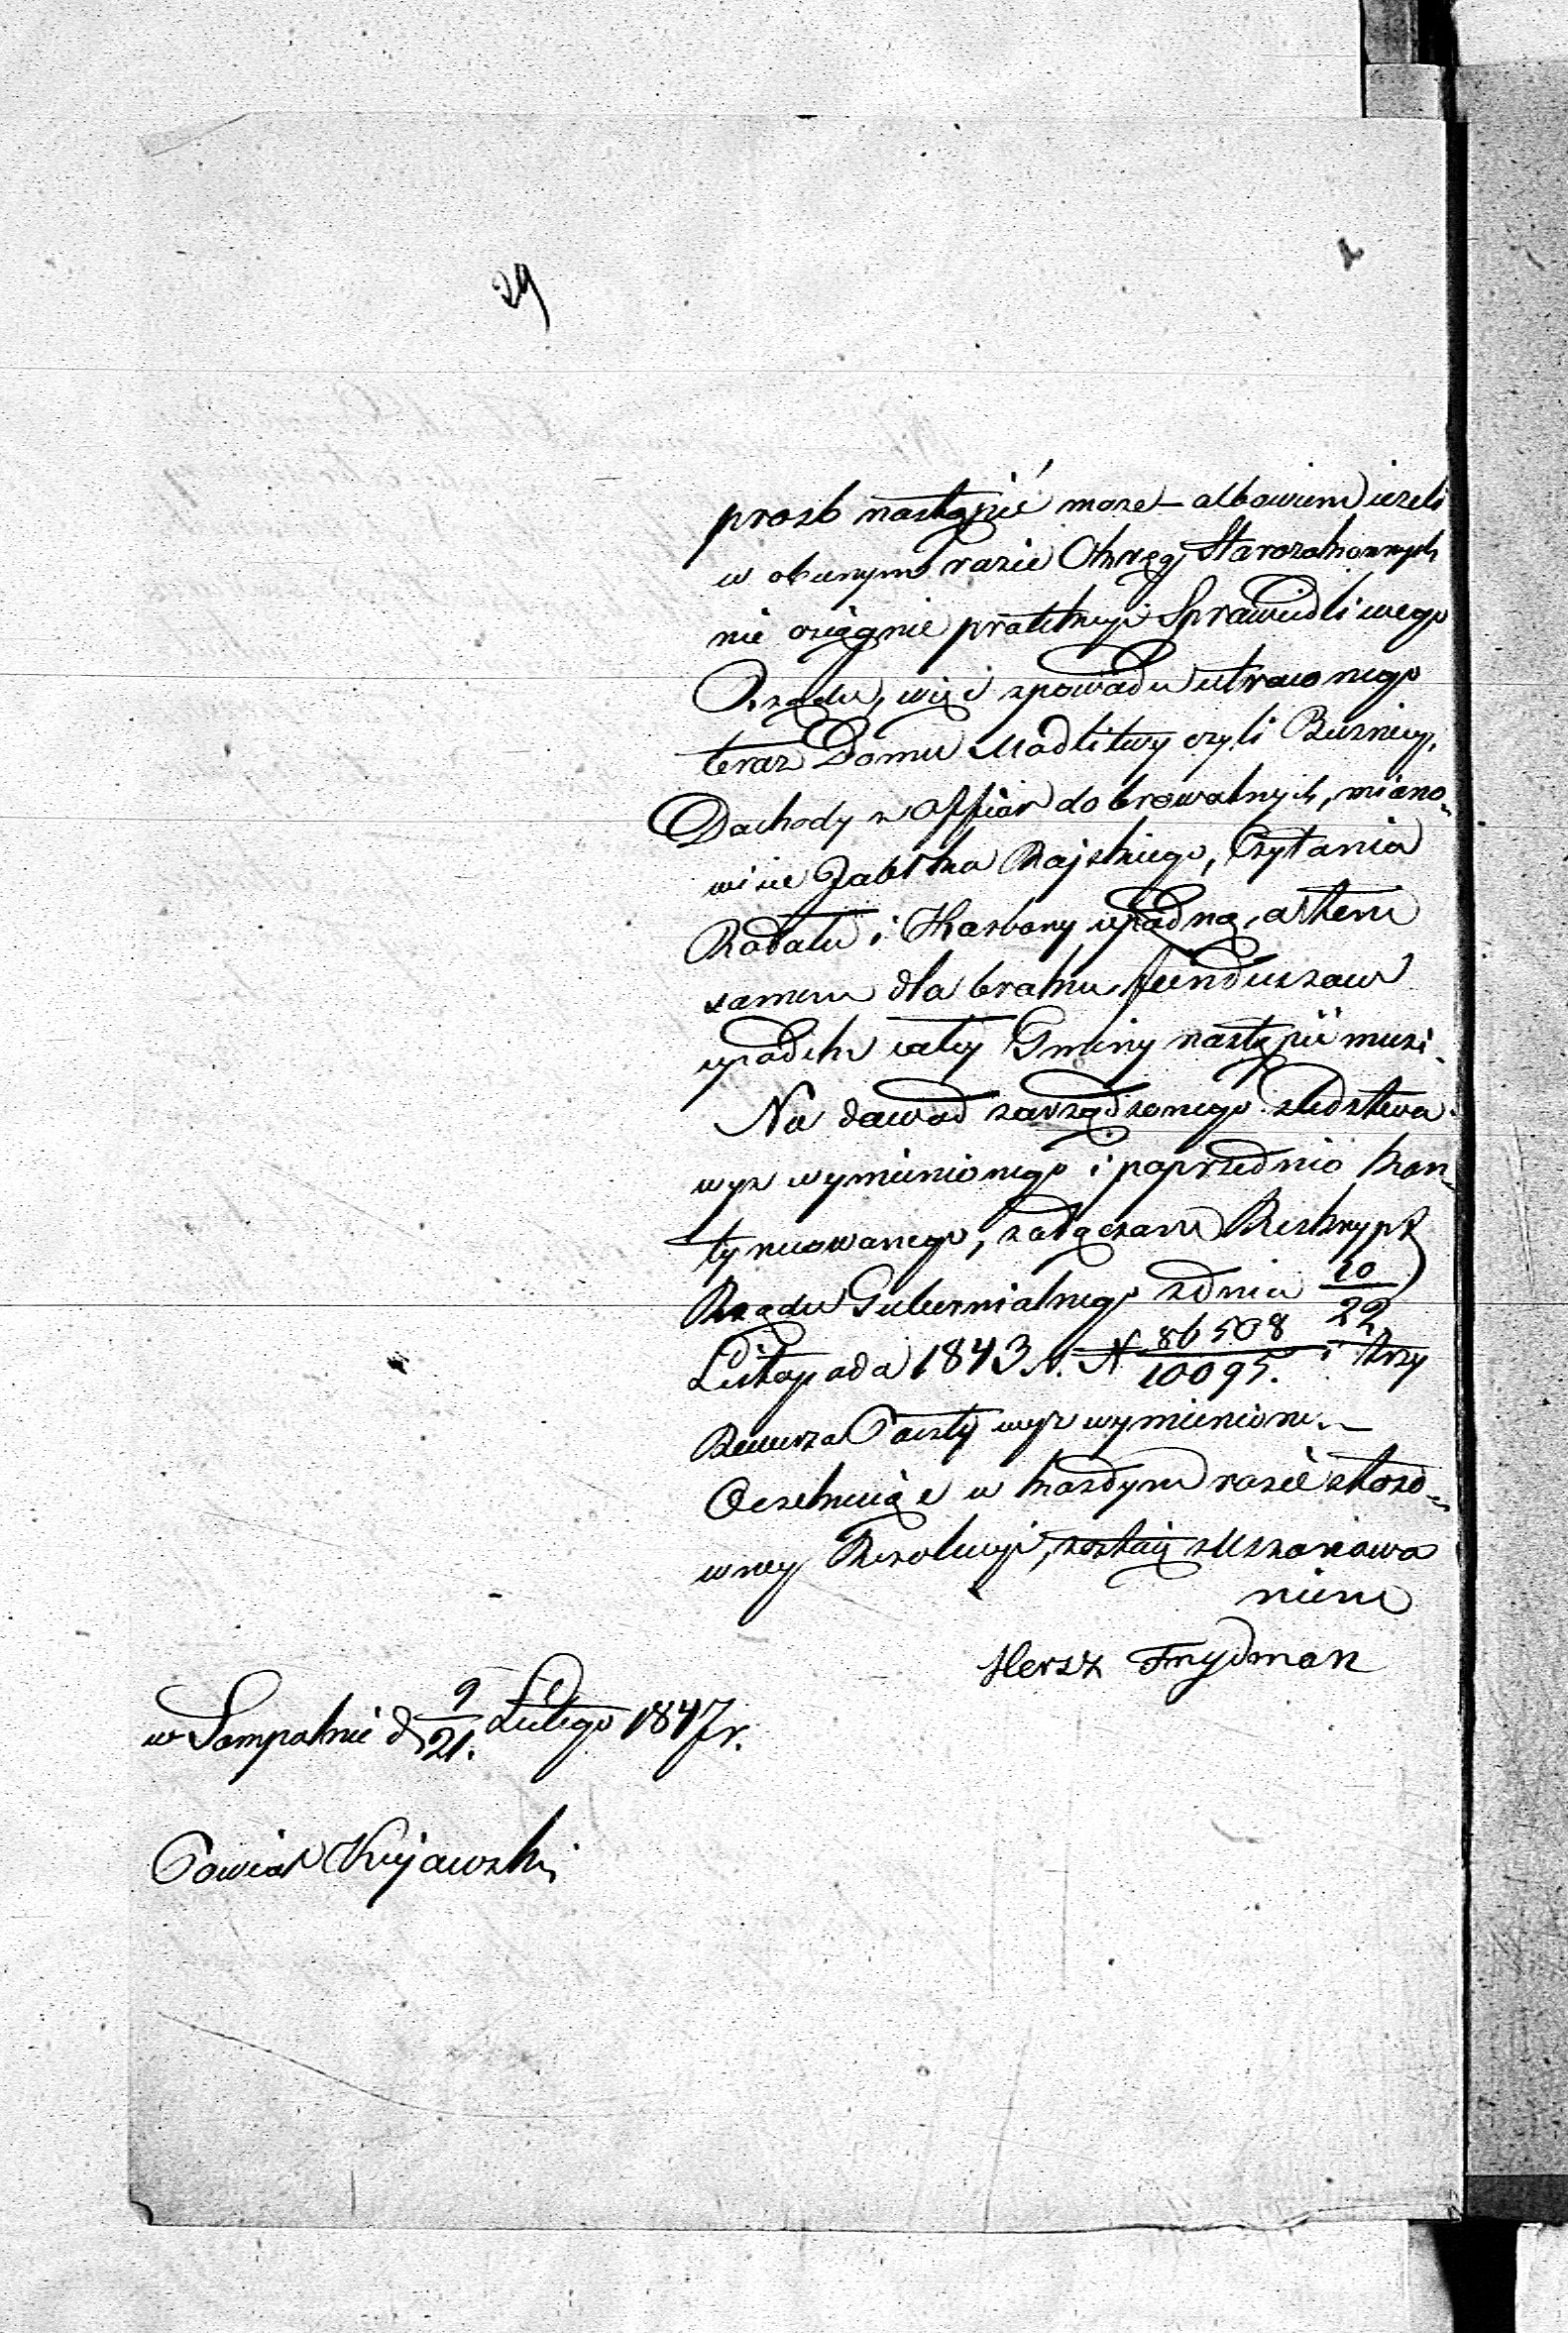 29
prozb nastąpić może – albowiem ieżeli
w obecnym razie Okręg Starozakonnych
nie osiągnie protekcyi Sprawiedliwego
Rządu, więc zpowodu utraconego
teraz Domu Modlitwy czyli Bużnicy,
Dochody z offiar dobrowolnych, miano-
wicie Jabłka Rajskiego, Czytania
Rodału i Skarbony upadną, a tem
samem dla braku funduszow
upadek całey Gminy nastąpić musi.
Na dowod zarządzonego sledztwa
wyz wymienionego i poprzednio kon-
tynuowanego, załączam Reskrypt
Rządu Gubernialnego zdnia 10/22
Listopada 1843 r. N 86508/10095. i trzy
Rewersa Poczty wyz wymienione. –
Oczekuiąc w każdym razie stoso-
wney Rezolucyi, zostaię zUszanowa
niem
Hersz Frydman
w Sompolnie d 9/21. Lutego 1847 r.
Powiat Kujawski